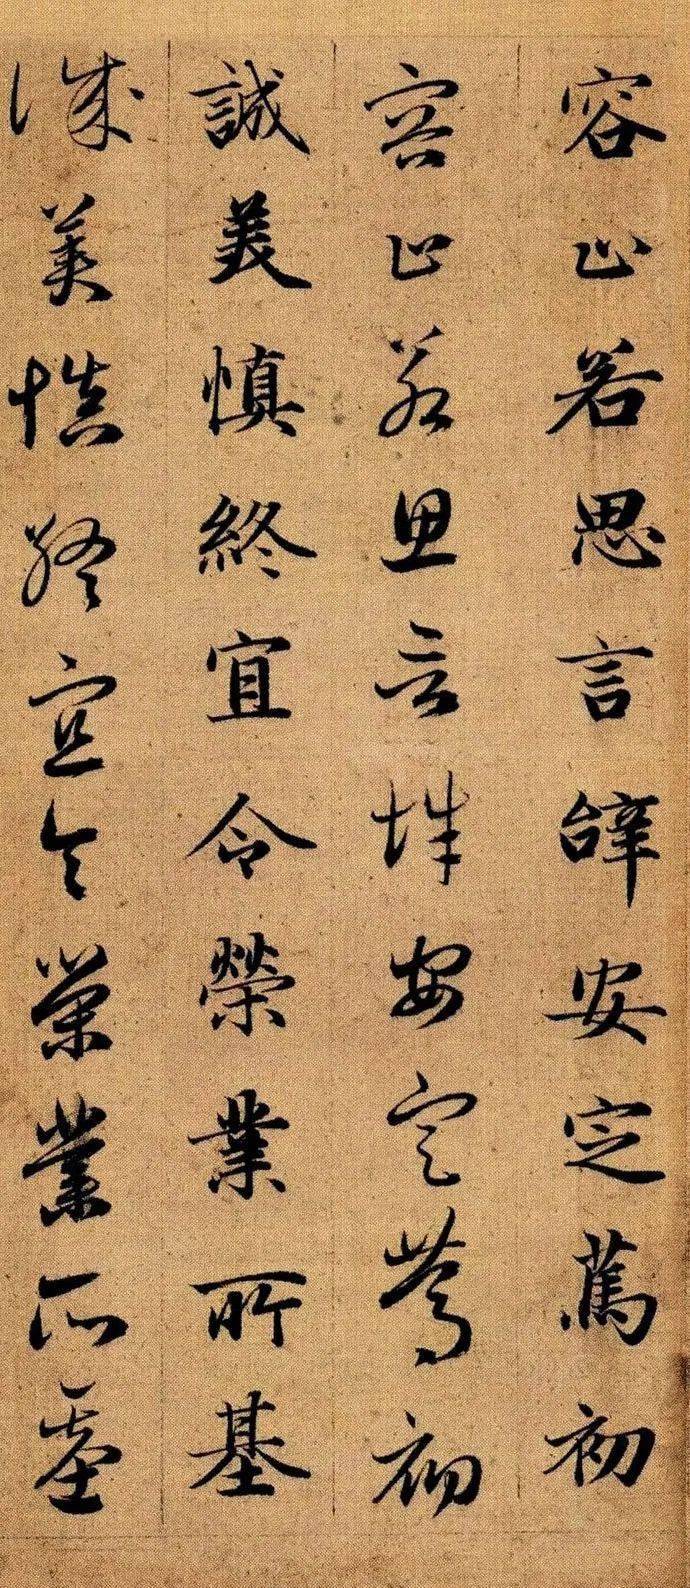 容止若思言辝安定篤初
容止若思言辝安定篤初
誠美慎終宜令榮業所基
誠美慎終宜令榮業所基